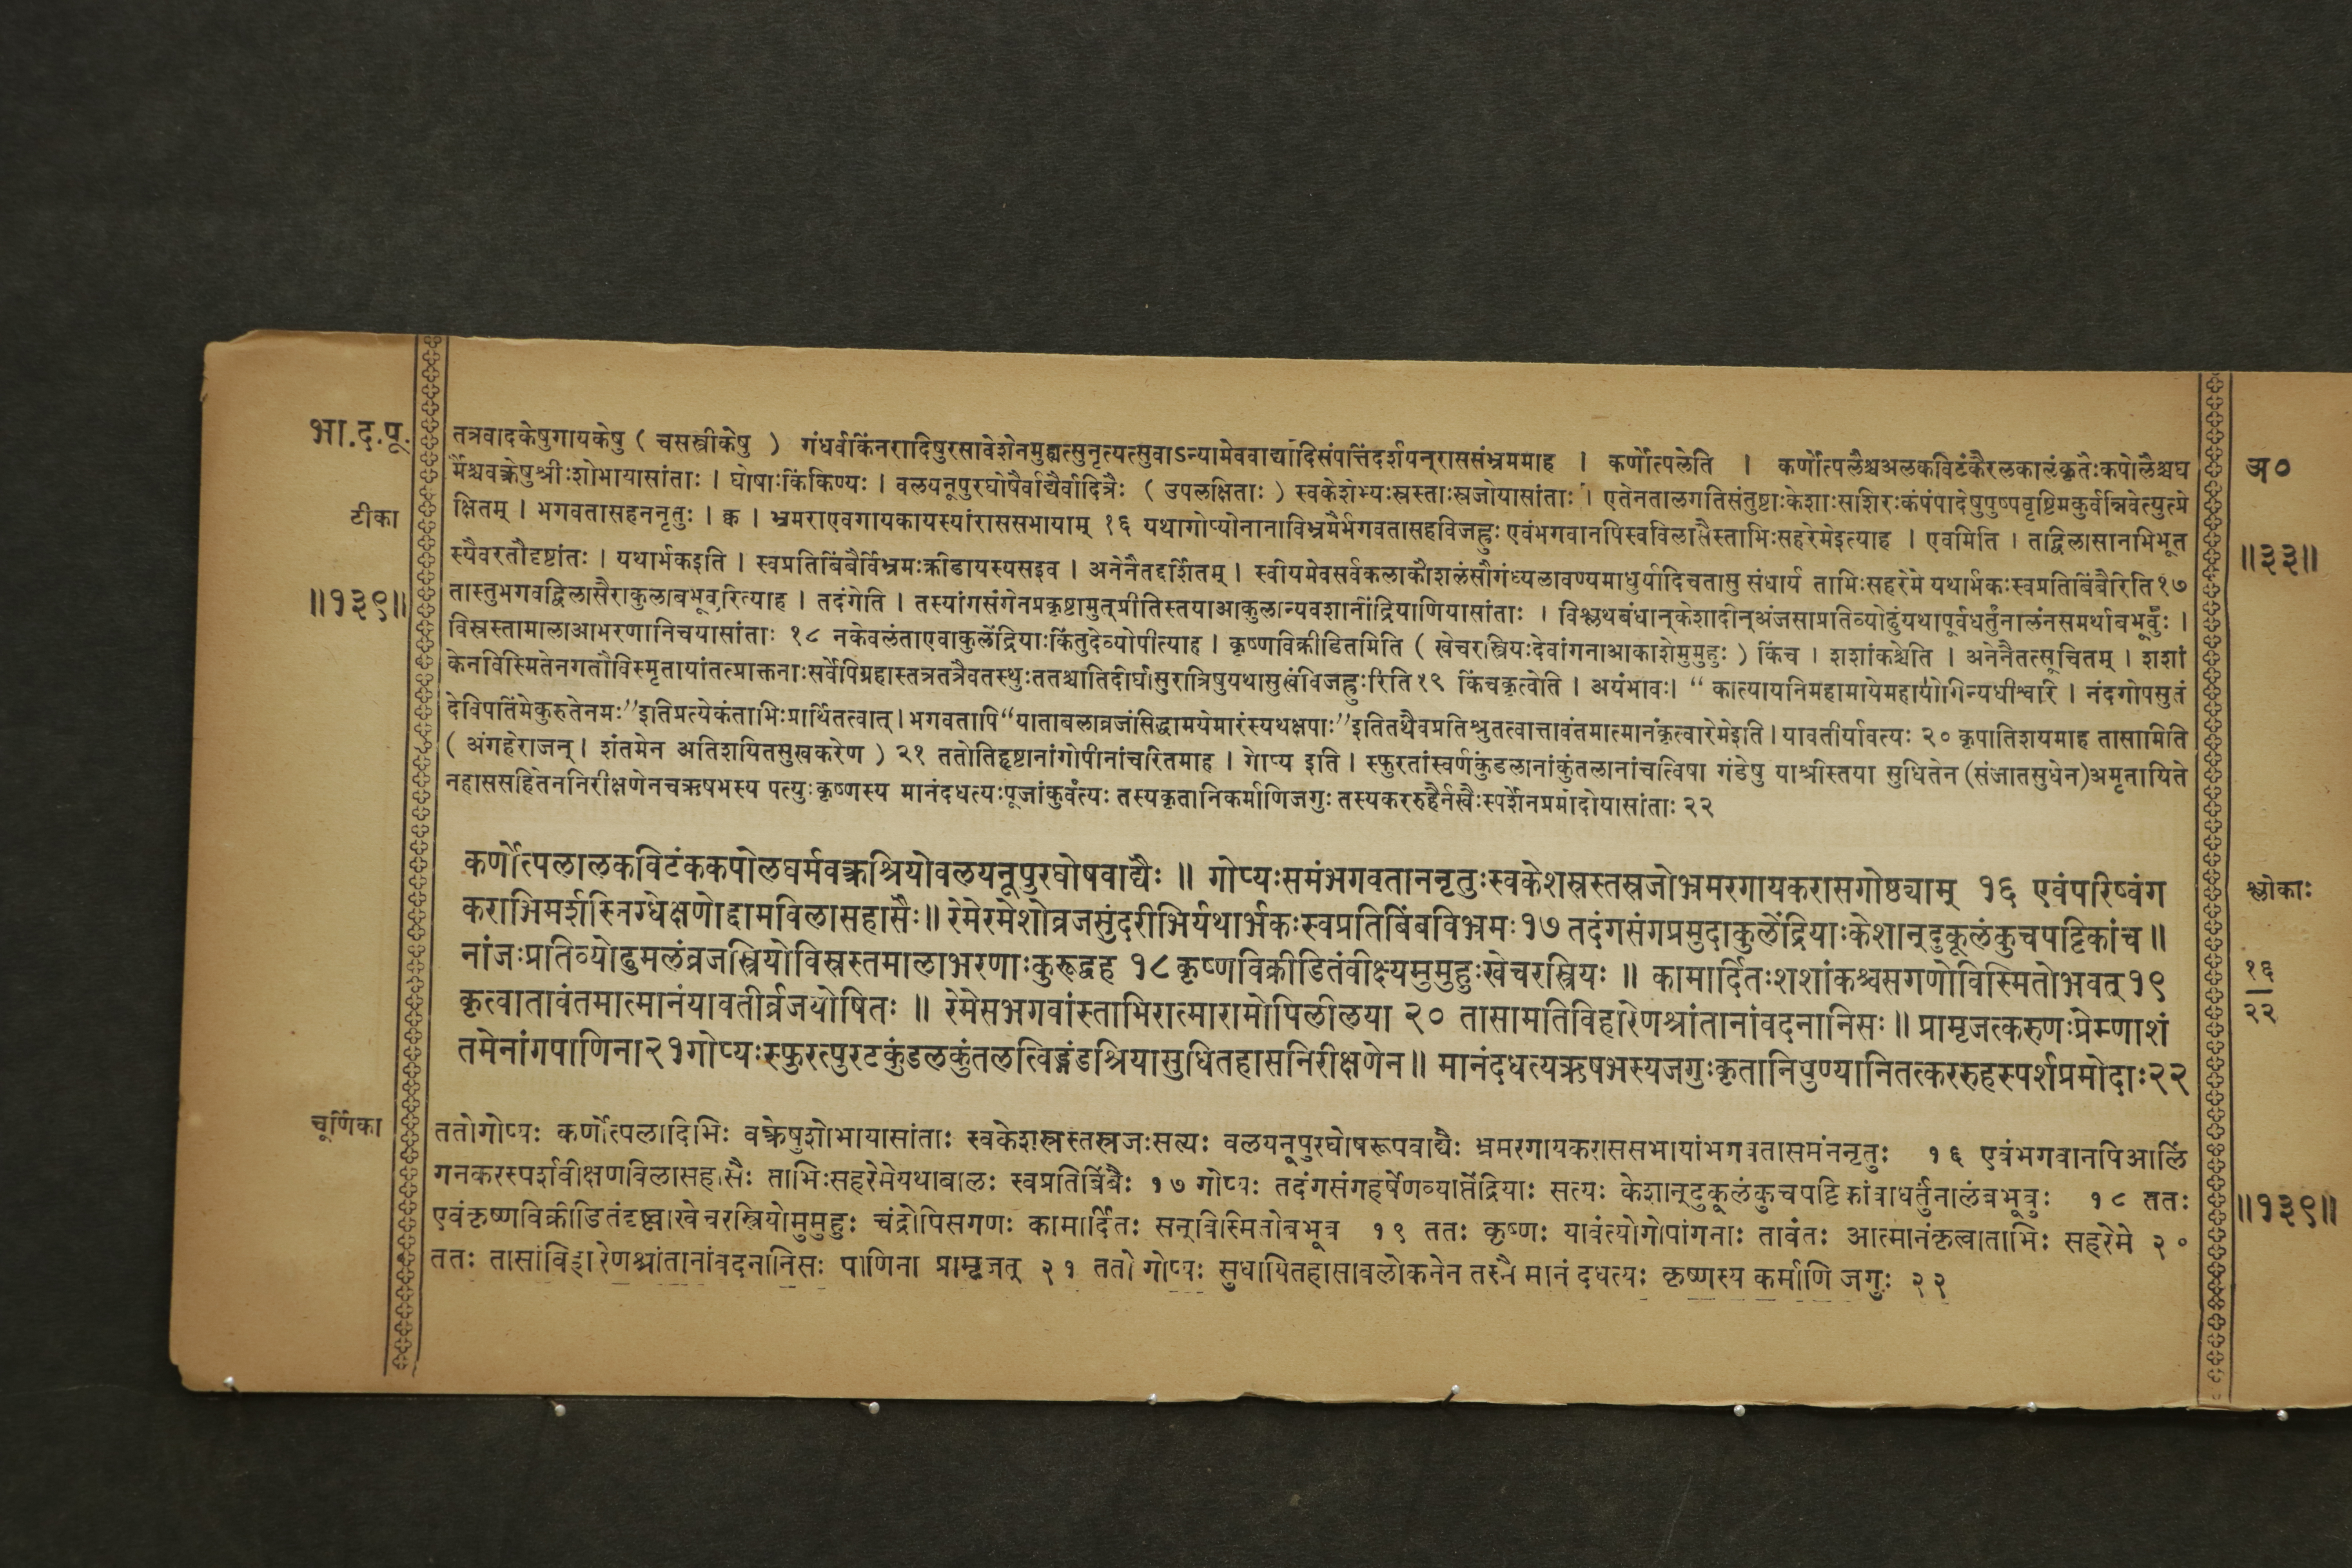 भा.द.पू.
टीका
॥१३९॥
तत्रवादकेषुगायकेषु ( चसस्त्रीकेषु ) गंधर्वकिंनरादिषुरसावेशेनमुह्यत्सुनृत्यत्सुवाऽन्यामेववाद्यादिसंपत्तिंदर्शयन्राससंभ्रममाह । कर्णोत्पलेति । कर्णोत्पलैश्चअलकविटंकैरलकालंकृतैःकपोलैश्चघ
र्मैश्चवक्रेषुश्रीःशोभायासांताः । घोषाःकिंकिण्यः । वलयनूपुरघोषैर्वाद्यैर्वादित्रैः ( उपलक्षिताः ) स्वकेशेभ्यःस्रस्ताःस्रजोयासांताः । एतेनतालगतिसंतुष्टाःकेशाःसशिरःकंपंपादेषुपुष्पवृष्टिमकुर्वन्निवेत्युत्प्रे
क्षितम् । भगवतासहननृतुः । क्व । भ्रमराएवगायकायस्यांराससभायाम् १६ यथागोप्योनानाविभ्रमैर्भगवतासहविजह्रुः एवंभगवानपिस्वविलासैस्ताभिःसहरेमेइत्याह । एवमिति । तद्विलासानभिभूत
स्यैवरतौदृष्टांतः । यथार्भकइति । स्वप्रतिबिंबैर्विभ्रमःक्रीडायस्यसइव । अनेनैतद्दर्शितम् । स्वीयमेवसर्वकलाकौशलंसौगंध्यलावण्यमाधुर्यादिचतासु संधार्य ताभिःसहरेमे यथार्भकःस्वप्रतिबिंबैरिति१७
तास्तुभगवद्विलासैराकुलाबभूवुरित्याह । तदंगेति । तस्यांगसंगेनप्रकृष्टामुत्प्रीतिस्तयाआकुलान्यवशानींद्रियाणियासांताः । विश्लथबंधान्केशादीन्अंजसाप्रतिव्योढुंयथापूर्वंधर्तुंनालंनसमर्थाबभूवुः ।
विस्रस्तामालाआभरणानिचयासांताः १८ नकेवलंताएवाकुलेंद्रियाःकिंतुदेव्योपीत्याह । कृष्णविक्रीडितमिति ( खेचरस्त्रियःदेवांगनाआकाशेमुमुहुः ) किंच । शशांकश्चेति । अनेनैतत्सूचितम् । शशां
केनविस्मितेनगतौविस्मृतायांतत्प्राक्तनाःसर्वेपिग्रहास्तत्रतत्रैवतस्थुःततश्चातिदीर्घासुरात्रिषुयथासुखंविजह्रुःरिति१९ किंचकृत्वेति । अयंभावः। “ कात्यायनिमहामायेमहायोगिन्यधीश्वारि । नंदगोपसुतं
देविपतिंमेकुरुतेनमः’’इतिप्रत्येकंताभिःप्रार्थितत्वात् । भगवतापि“याताबलाव्रजंसिद्धामयेमारंस्यथक्षपाः’’इतितथैवप्रतिश्रुतत्वात्तावंतमात्मानंकृत्वारेमेइति । यावतीर्यावत्यः २० कृपातिशयमाह तासामिति
( अंगहेराजन् । शंतमेन अतिशयितसुखकरेण ) २१ ततोतिहृष्टानांगोपीनांचरितमाह । गोप्य इति । स्फुरतांस्वर्णकुंडलानांकुंतलानांचत्विषा गंडेषु याश्रीस्तया सुधितेन (संजातसुधेन)अमृतायिते
नहाससहितेननिरीक्षणेनचऋषभस्य पत्युःकृष्णस्य मानंदधत्यःपूजांकुर्वंत्यः तस्यकृतानिकर्माणिजगुः तस्यकररुहैर्नखैःस्पर्शेनप्रमोदोयासांताः २२
कर्णोत्पलालकविटंककपोलघर्मवक्रश्रियोवलयनूपुरघोषवाद्यैः ॥ गोप्यःसमंभगवताननृतुःस्वकेशस्रस्तस्रजोभ्रमरगायकरासगोष्ठ्याम् १६ एवंपरिष्वंग
कराभिमर्शस्निग्धेक्षणोद्दामविलासहासैः॥ रेमेरमेशोव्रजसुंदरीभिर्यथार्भकःस्वप्रतिबिंबविभ्रमः१७ तदंगसंगप्रमुदाकुलेंद्रियाःकेशान्दुकूलंकुचपट्टिकांच॥
नांजःप्रतिव्योढुमलंव्रजस्त्रियोविस्रस्तमालाभरणाःकुरूद्वह १८ कृष्णविक्रीडितंवीक्ष्यमुमुहुःखेचरस्त्रियः ॥ कामार्दितःशशांकश्चसगणोविस्मितोभवत् १९
कृत्वातावंतमात्मानंयावतीर्व्रजयोषितः ॥ रेमेसभगवांस्ताभिरात्मारामोपिलीलया २० तासामतिविहारेणश्रांतानांवदनानिसः॥ प्रामृजत्करुणःप्रेम्णाशं
तमेनांगपाणिना२१गोप्यःस्फुरत्पुरटकुंडलकुंतलत्विड्गंडश्रियासुधितहासनिरीक्षणेन॥ मानंदधत्यऋषभस्यजगुःकृतानिपुण्यानितत्कररुहस्पर्शप्रमोदाः२२
चूर्णिका
ततोगोप्यः कर्णोत्पलादिभिः वक्रेषुशोभायासांताः स्वकेशस्रस्तस्रजःसत्यः वलयनूपुरघोषरूपवाद्यैः भ्रमरगायकराससभायांभगवतासमंननृतुः १६ एवंभगवानपिआलिं
गनकरस्पर्शवीक्षणविलासहासैः ताभिःसहरेमेयथाबालः स्वप्रतिबिंबैः १७ गोप्यः तदंगसंगहर्षेणव्याप्तेंद्रियाः सत्यः केशान्दुकूलंकुचपट्टिकांवाधर्तुंनालंबभूवुः १८ ततः
एवंकृष्णविक्रीडितंदृष्ट्वाखेचरस्त्रियोमुमुहुः चंद्रोपिसगणः कामार्दितः सन्विस्मितोबभूव १९ ततः कृष्णः यावंत्योगोपांगनाः तावंतः आत्मानंकृत्वाताभिः सहरेमे २०
ततः तासांविहारेणश्रांतानांवदनानिसः पाणिना प्रामृजत् २१ ततो गोप्यः सुधायितहासावलोकनेन तस्मै मानं दधत्यः कृष्णस्य कर्माणि जगुः २२
अ०
॥३३॥
श्लोकाः
१६
२२
॥१३९॥